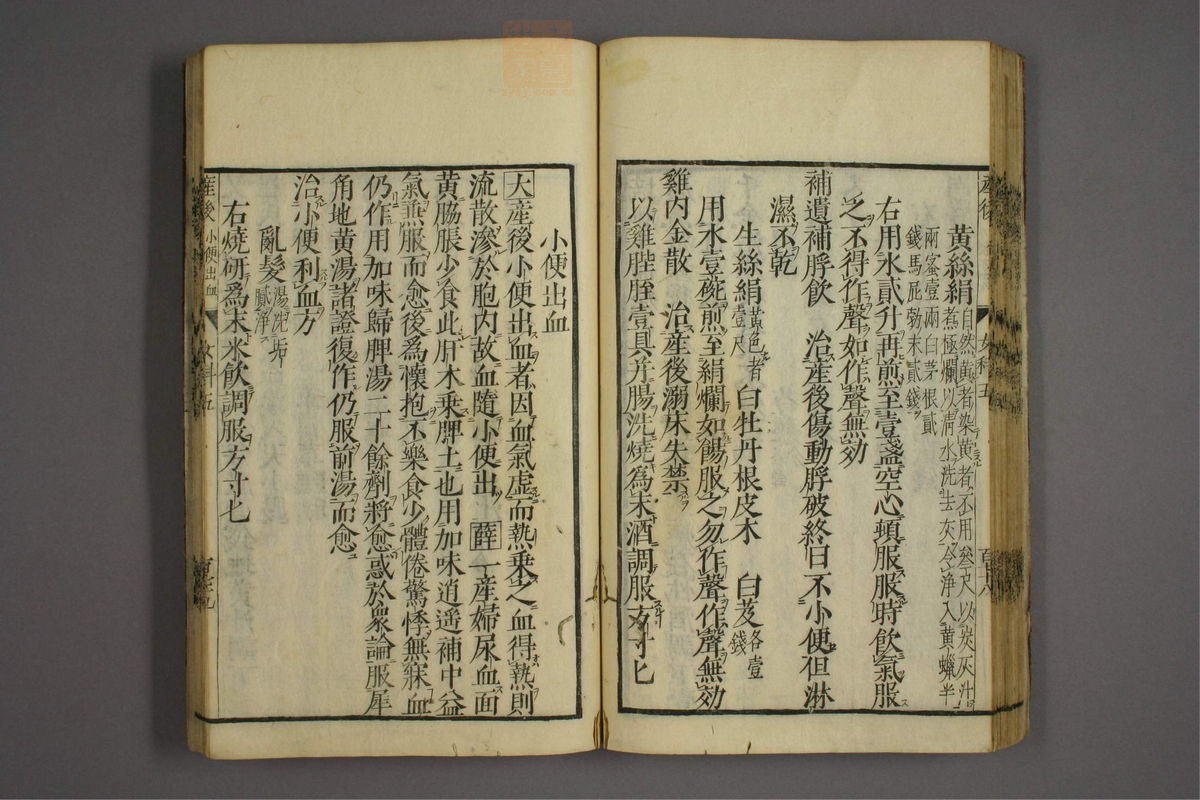 黄絲絹自然黄者染黄者不用叄尺以炭灰汁
煮極爛以淸水洗去灰令净入黄蠟半
兩蜜壹兩白茅根貳
錢馬屁勃末貳錢
右用水貳升再煎至壹盞空心頓服服時飲氣服
之不得作聲如作聲無効
補遺補脬飲　治產後傷動脬破終日不小便但淋
濕不乾
生絲絹黄色者壹尺　白牡丹根皮木　白芨各壹錢
用水壹碗煎至絹爛如餳服之勿作聲作聲無効
雞内金散　治產後溺床失禁
以雞䏶胵壹具并腸洗燒爲末酒調服方寸匕
小便出血
大產後小便出血者因血氣虛而熱乘之血得熱則
流散滲於胞内故血隨小便出　薛一産婦尿血面
黄脇脹少食此肝木乘脾土也用加味逍遥補中益
氣兼服而愈後爲懷抱不樂食少體倦驚悸無寐血
仍作用加味歸脾湯二十餘劑將愈惑於衆論服犀
角地黄湯諸證復作仍服前湯而愈
治小便利血方
亂髮湯洗垢膩淨
右燒研爲末米飲調服方寸匕
產後　小便出血　女科五